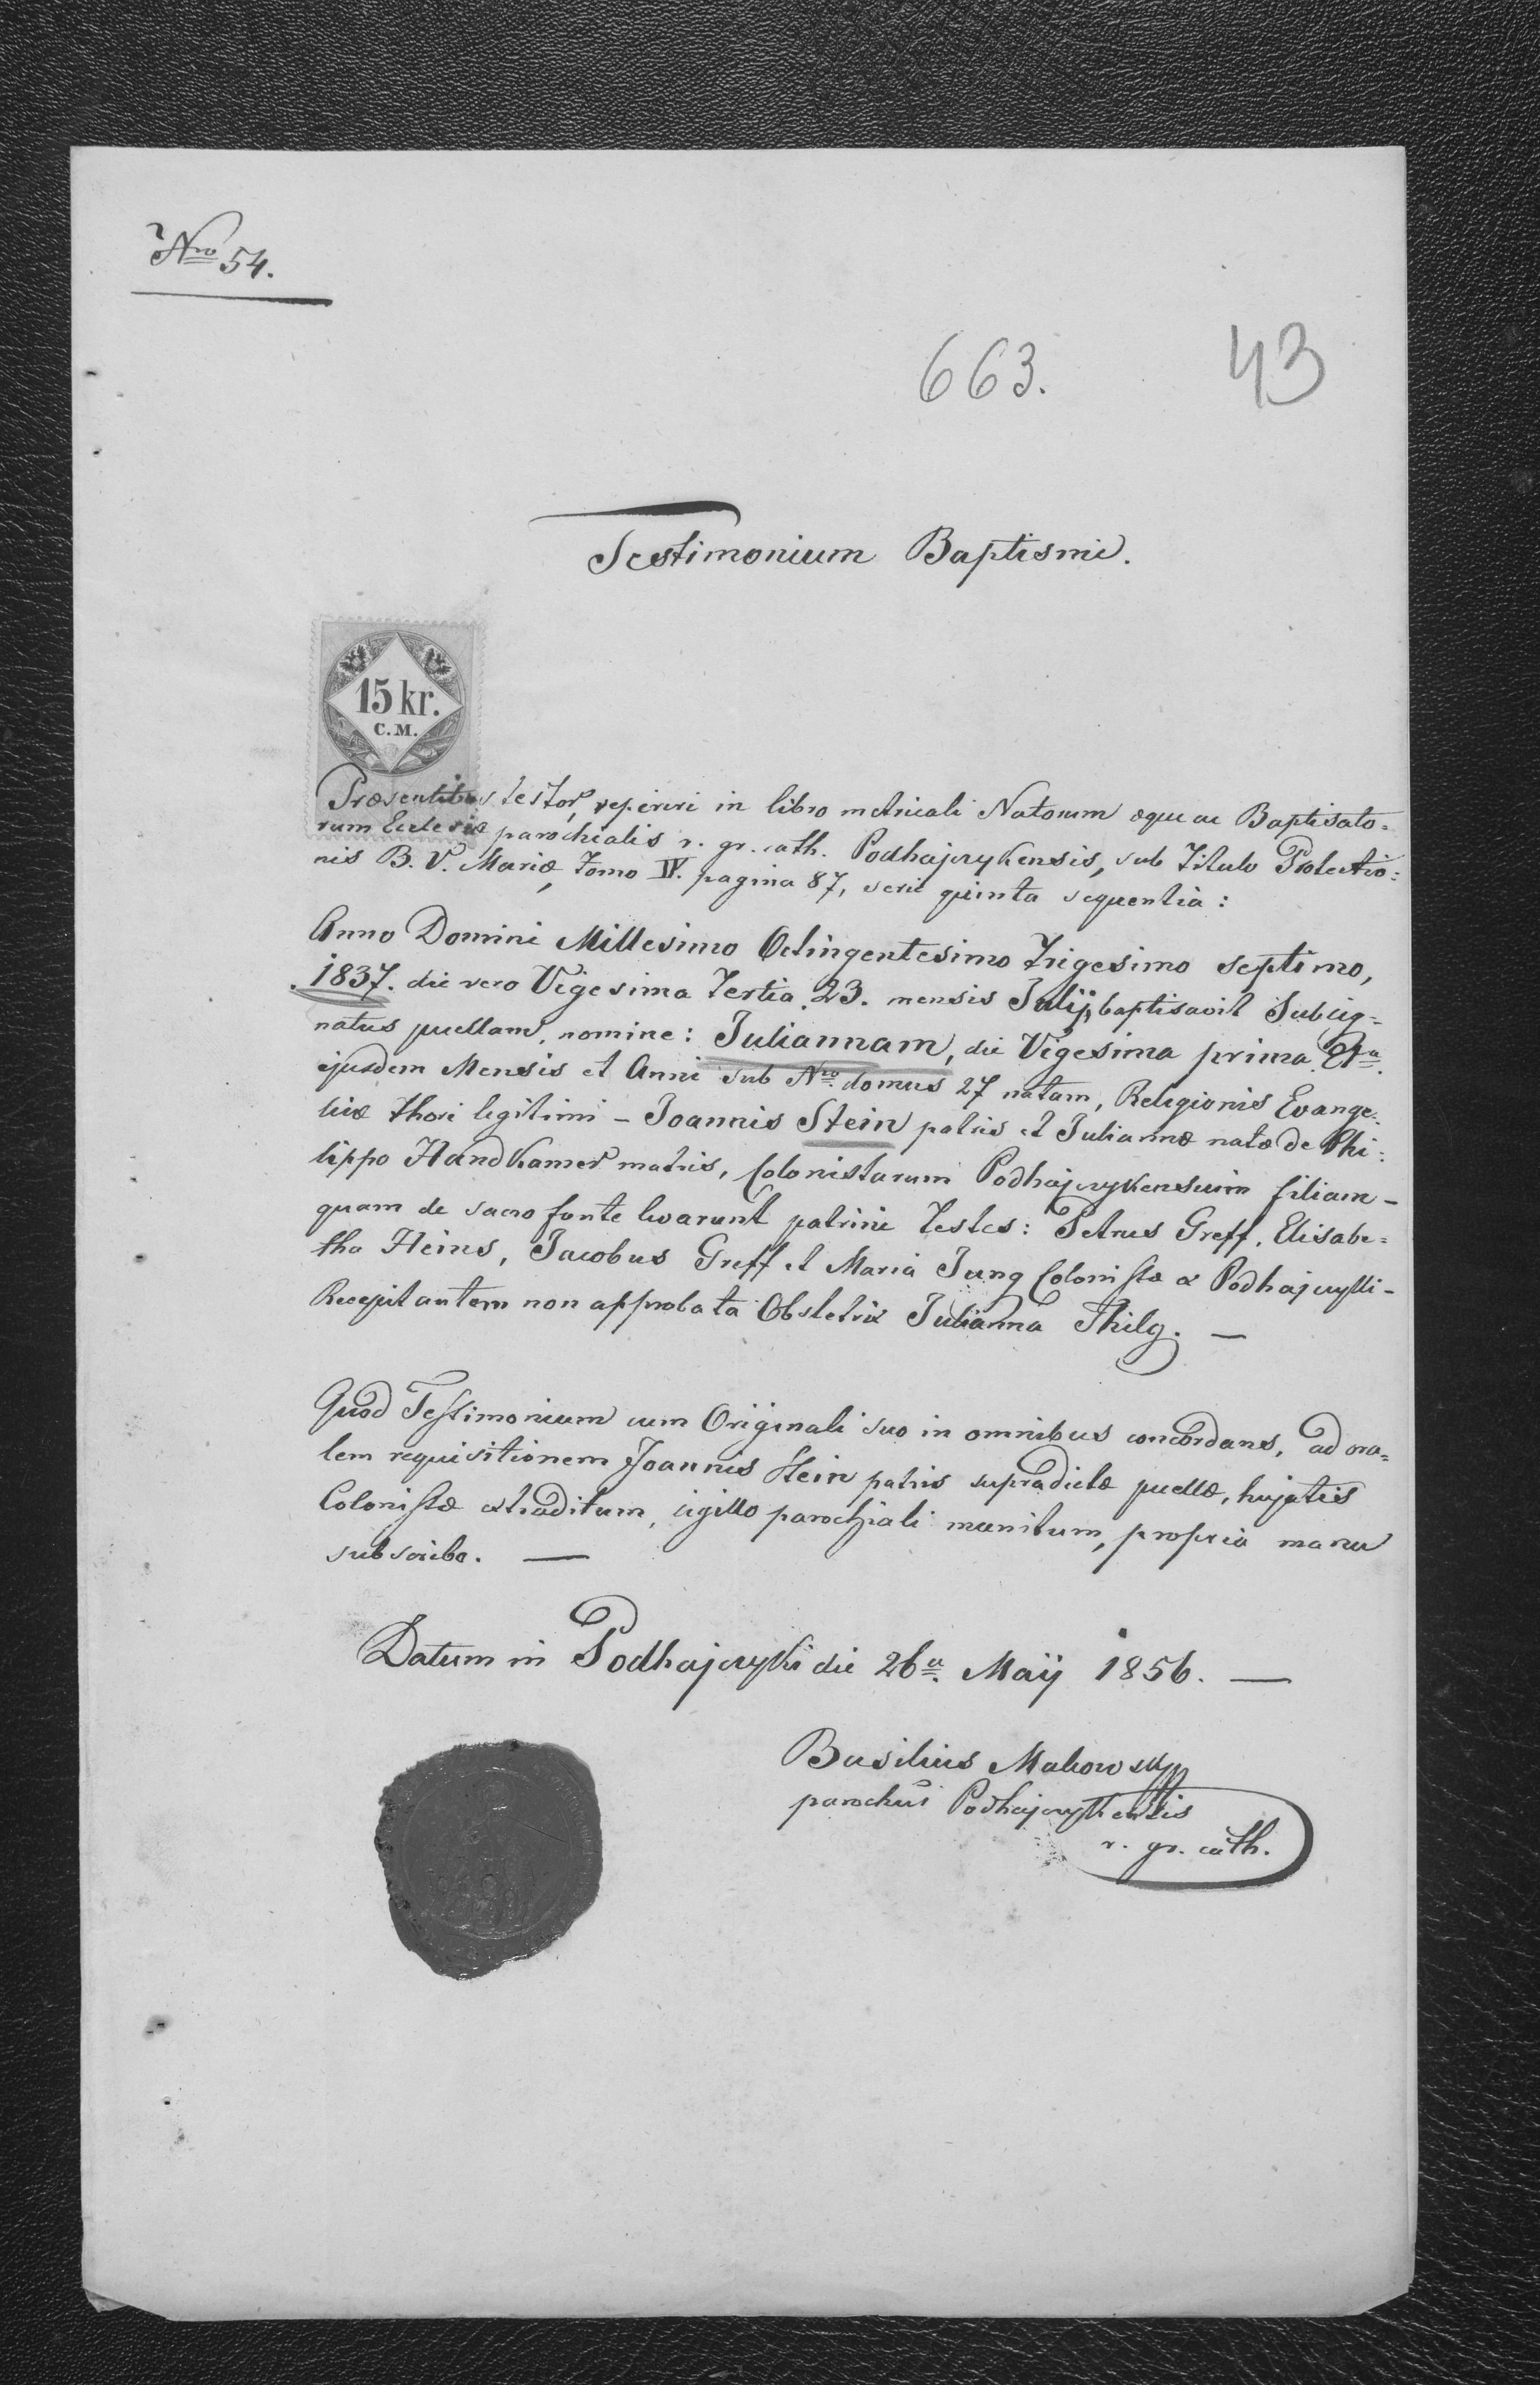 Nro 54.
663.
43
Testimonium Baptismi.
15 kr.
C.M.
Præsentibus testor, reperiri in libro metricali Natorum æque ac Baptisato=
rum Ecclesiæ parochialis r. gr. cath. Podhajczykensis, sub Titulo Protectio=
nis B. V. Mariæ, Tomo IV. pagina 87, serie quinta sequentia:
Anno Domini Millesimo Octingentesimo Trigesimo septimo,
1837. die vero Vigesima Tertia 23. mensis Julij, baptisavit Subsig=
natus puellam, nomine: Juliannam, die Vigesima prima 21a
ejusdem Mensis et Anni sub Nro domus 27 natam, Religionis Evange=
licæ thori legitimi - Joannis Stein patris et Juliannæ natæ de Phi=
lippo Handkamer matris, Colonistarum Podhajczykensium filiam -
quam de sacro fonte levarunt patrini Testes: Petrus Greff, Elisabe=
tha Heins, Jacobus Greff et Maria Jung Colonistæ ex Podhajczyki -
Recepit autem non approbata Obstetrix Julianna Thilg. —
Quod Testimonium cum Originali suo in omnibus concordans, ad ora=
lem requisitionem Joannis Stein patris supradictæ puellæ, hujatis
Colonistæ extraditum, sigillo parochiali munitum, propria manu
subscribo. —
Datum in Podhajczyki die 26a Maij 1856. —
Basilius Makowsky
parochus Podhajczykensis
r. gr. cath.